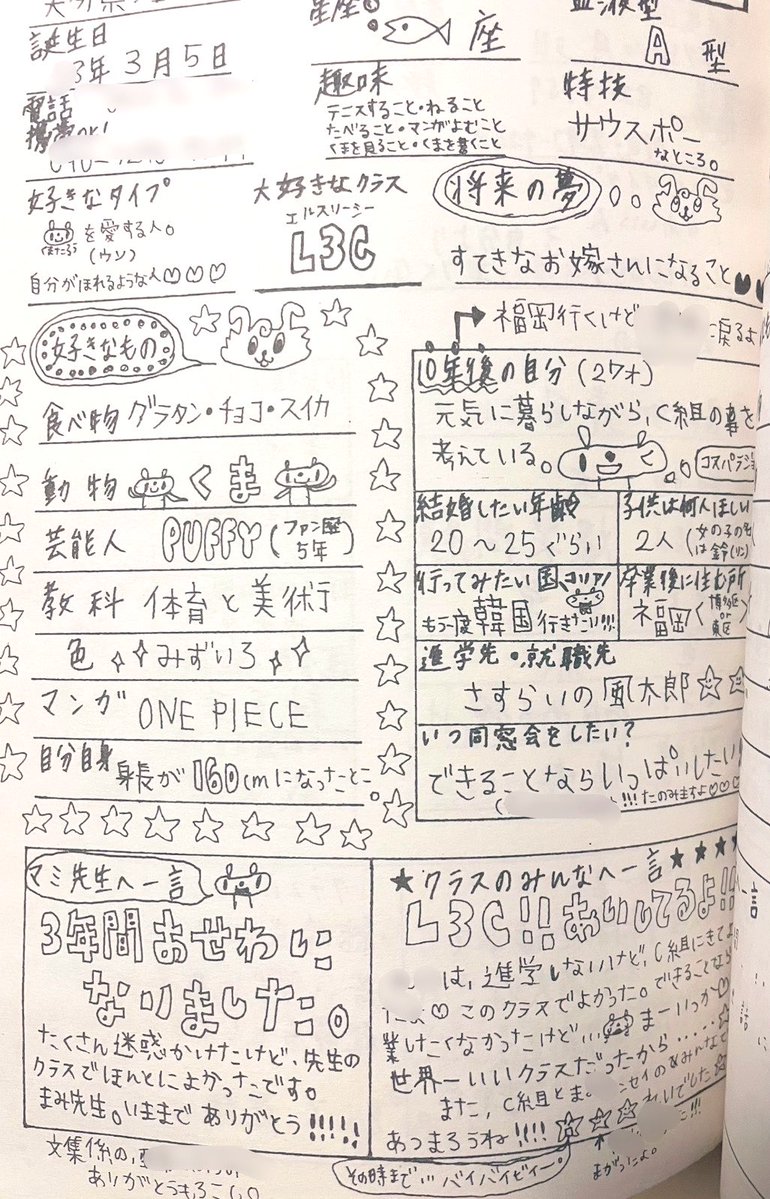 誕生日
3年3月5日
電話
携帯
星座
座
血液型
A型
趣味
テニスすること・ねること
たべること・マンガよむこと
くまを見ること・くまを書くこと
特技
サウスポー
なところ。
好きなタイプ
を愛する人。
(ウソ)
自分がほれるような人♡♡♡
大好きなクラス
エルスリーシー
L3C
将来の夢
すてきなお嫁さんになること
好きなもの
食べ物 グラタン・チョコ・スイカ
動物 くま
芸能人 PUFFY(ファン歴5年)
教科 体育と美術
色 みずいろ
マンガ ONE PIECE
自分自身 身長が160cmになったとこ。
福岡行くけど
戻るよ
10年後の自分(27才)
元気に暮らしながら、C組の事を
考えている。
結婚したい年齢
20〜25ぐらい
子供は何人ほしい
2人(女の子の名は鈴(リン)
行ってみたい国
コリア!
もう一度韓国行きたい!!!
卒業後に住む所
福岡(博多区or東区)
進学先・就職先
さすらいの風太郎☆☆
いつ同窓会をしたい?
できることならいっぱいしたい!
!!!たのみますよ♡♡♡
マミ先生へ一言
3年間おせわに
なりました。
たくさん迷惑かけたけど、先生の
クラスでほんとによかったです。
まみ先生。いままでありがとう!!!!!
★クラスのみんなへ一言★★★★
L3C!!あいしてるよ!!
は、進学しないけど、C組にきてよ
♡このクラスでよかった。できることなら
業したくなかったけど… まーいっか♡
世界一いいクラスだったから.....
また、C組とま
あつまろうね!!!!☆☆☆
文集係の、
ありがとう
その時まで…バイバイビィー。
まがったよ。